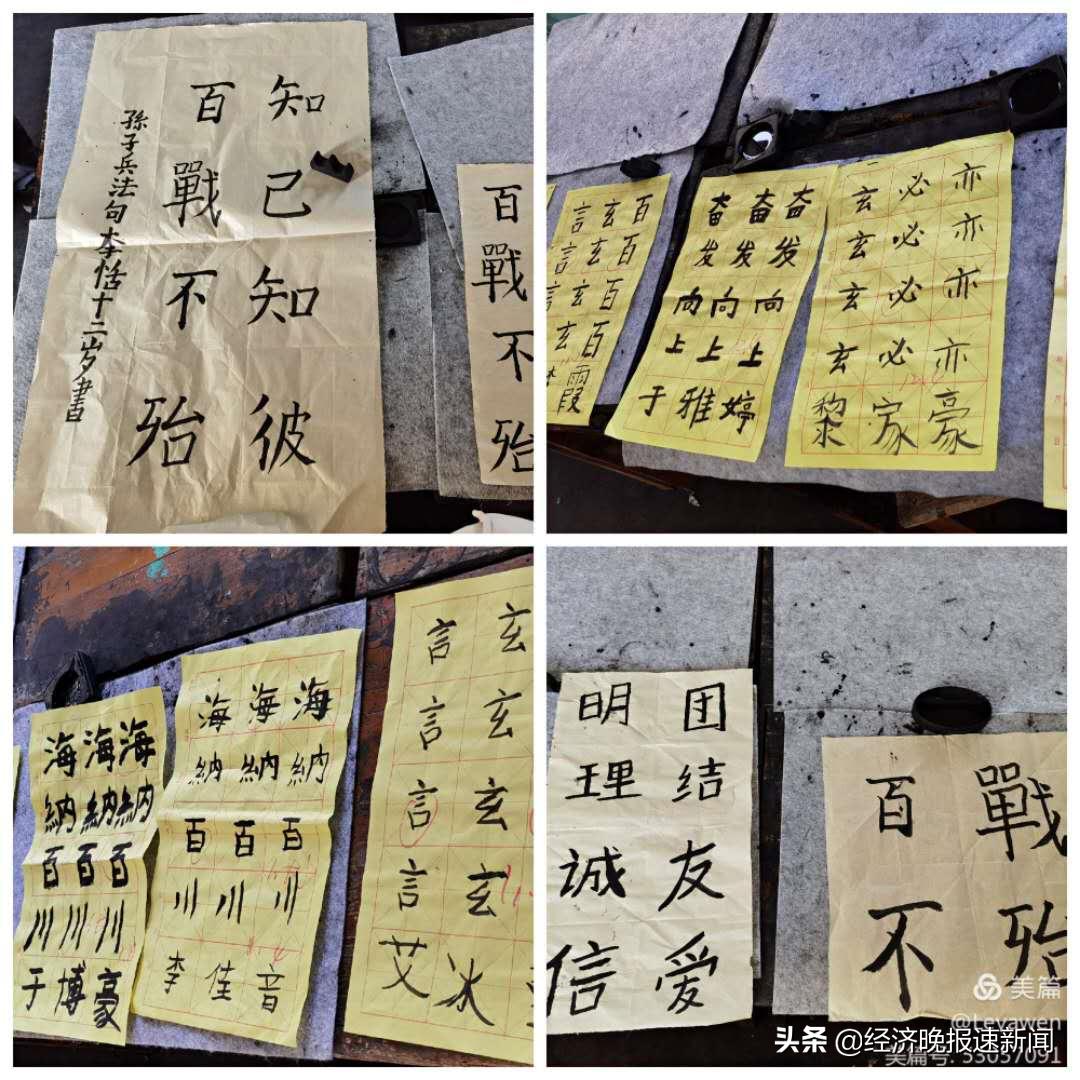 知己知彼
百戰不殆
孫子兵法句李恬十二岁書
百戰不殆
百百百百
玄玄玄玄
言言言言
霞
奋奋奋
发发发
向向向
上上上
于雅婷
亦亦亦亦
必必必必
玄玄玄玄
黎家豪
海海海
納納納
百百百
川川川
于博豪
海海海
納納納
百百百
川川川
李佳音
言玄
言玄
言玄
言玄
艾冰
团结友爱
明理诚信
百戰
不殆
美篇
@Tevawen
美篇号: 53057091
头条 @经济晚报速新闻